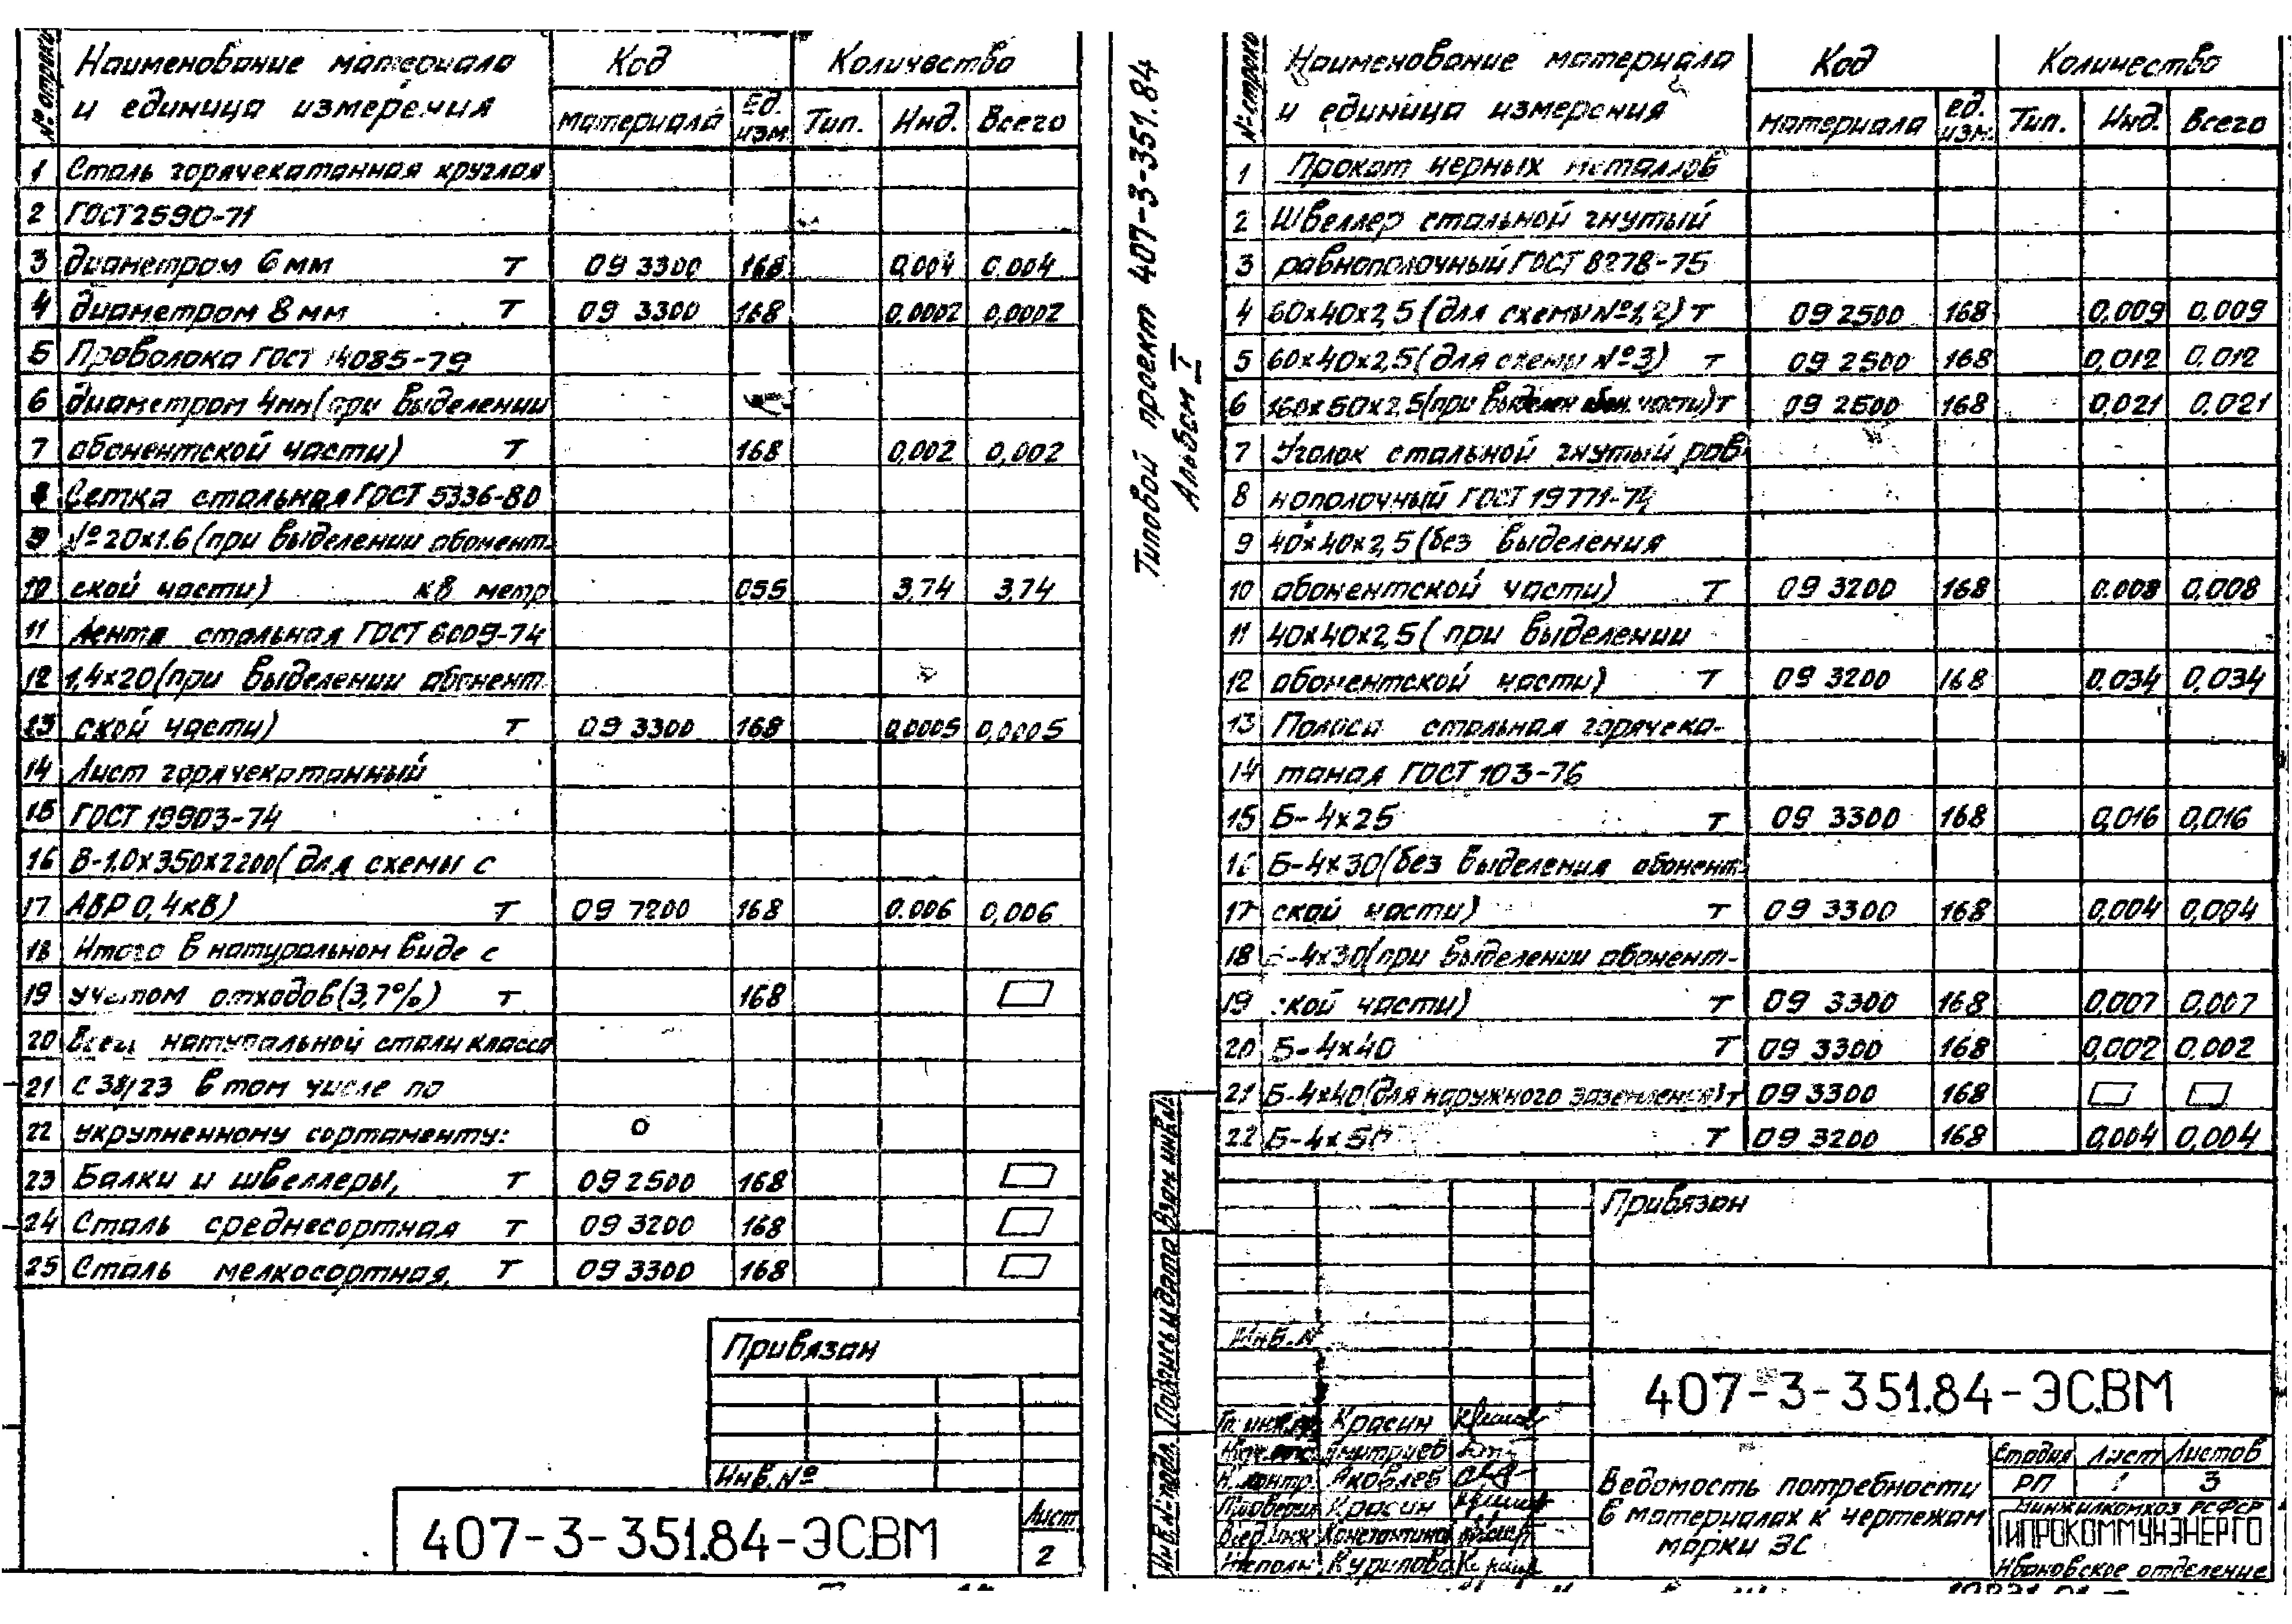 № строки Наименование материала и единица измерения Код Количество
материала Ед. изм. Тип. Инд. Всего
1 Сталь горячекатанная круглая
2 ГОСТ 2590-71
3 диаметром 6 мм т 09 3300 168 0,004 0,004
4 диаметром 8 мм т 09 3300 168 0,0002 0,0002
5 Проволока ГОСТ 14085-79
6 диаметром 4мм (при выделении
7 абонентской части) т 168 0,002 0,002
8 Сетка стальная ГОСТ 5336-80
9 №20х1.6 (при выделении абонент-
10 ской части) кв метр 055 3,74 3,74
11 Лента стальная ГОСТ 6009-74
12 1,4х20 (при выделении абонент
13 ской части) т 09 3300 168 0,0005 0,0005
14 Лист горячекатанный
15 ГОСТ 19903-74
16 В-1.0х350х2200 (для схемы с
17 АВР 0,4кВ) т 09 7200 168 0.006 0,006
18 Итого в натуральном виде с
19 учетом отходов (3,7%) т 168
20 Всего натуральной стали класса
21 С 38/23 в том числе по
22 укрупненному сортаменту:
23 Балки и швеллеры, т 09 2500 168
24 Сталь среднесортная т 09 3200 168
25 Сталь мелкосортная, т 09 3300 168
Привязан
Инв.№
407-3-351.84-ЭС.ВМ
Лист
2
Типовой проект 407-3-351.84
Альбом I
№ строки Наименование материала и единица измерения Код Количество
материала ед. изм. Тип. Инд. Всего
1 Прокат черных металлов
2 Швеллер стальной гнутый
3 равнополочный ГОСТ 8278-75
4 60х40х2,5 (для схемы №1,2) т 09 2500 168 0,009 0,009
5 60х40х2,5 (для схемы №3) т 09 2500 168 0,012 0,012
6 160х50х2,5 (при выделен абон. части) т 09 2500 168 0.021 0,021
7 Уголок стальной гнутый рав-
8 нополочный ГОСТ 19771-74
9 40х40х2,5 (без выделения
10 абонентской части) т 09 3200 168 0.008 0,008
11 40х40х2,5 (при выделении
12 абонентской части) т 09 3200 168 0.034 0,034
13 Полоса стальная горячека-
14 таная ГОСТ 103-76
15 Б-4х25 т 09 3300 168 0,016 0,016
16 Б-4х30 (без выделения абонент-
17 ской части) т 09 3300 168 0,004 0,004
18 Б-4х30 (при выделении абонент-
19 ской части) т 09 3300 168 0,007 0,007
20 Б-4х40 т 09 3300 168 0,002 0,002
21 Б-4х40 (для наружного заземления) т 09 3300 168
22 Б-4х50 т 09 3200 168 0,004 0,004
Инв.№ подл. Подпись и дата Взам инв.№
Привязан
Инв.№
407-3-351.84-ЭС.ВМ
Гл. инж.пр. Красин
Дмитриев
Н.контр. Яковлев
Проверил Красин
Вед.инж Константинов
Исполн. Курилова
Ведомость потребности
в материалах к чертежам
марки ЭС
Стадия Лист Листов
РП 1 3
Минжилкомхоз РСФСР
ГИПРОКОММУНЭНЕРГО
Ивановское отделение